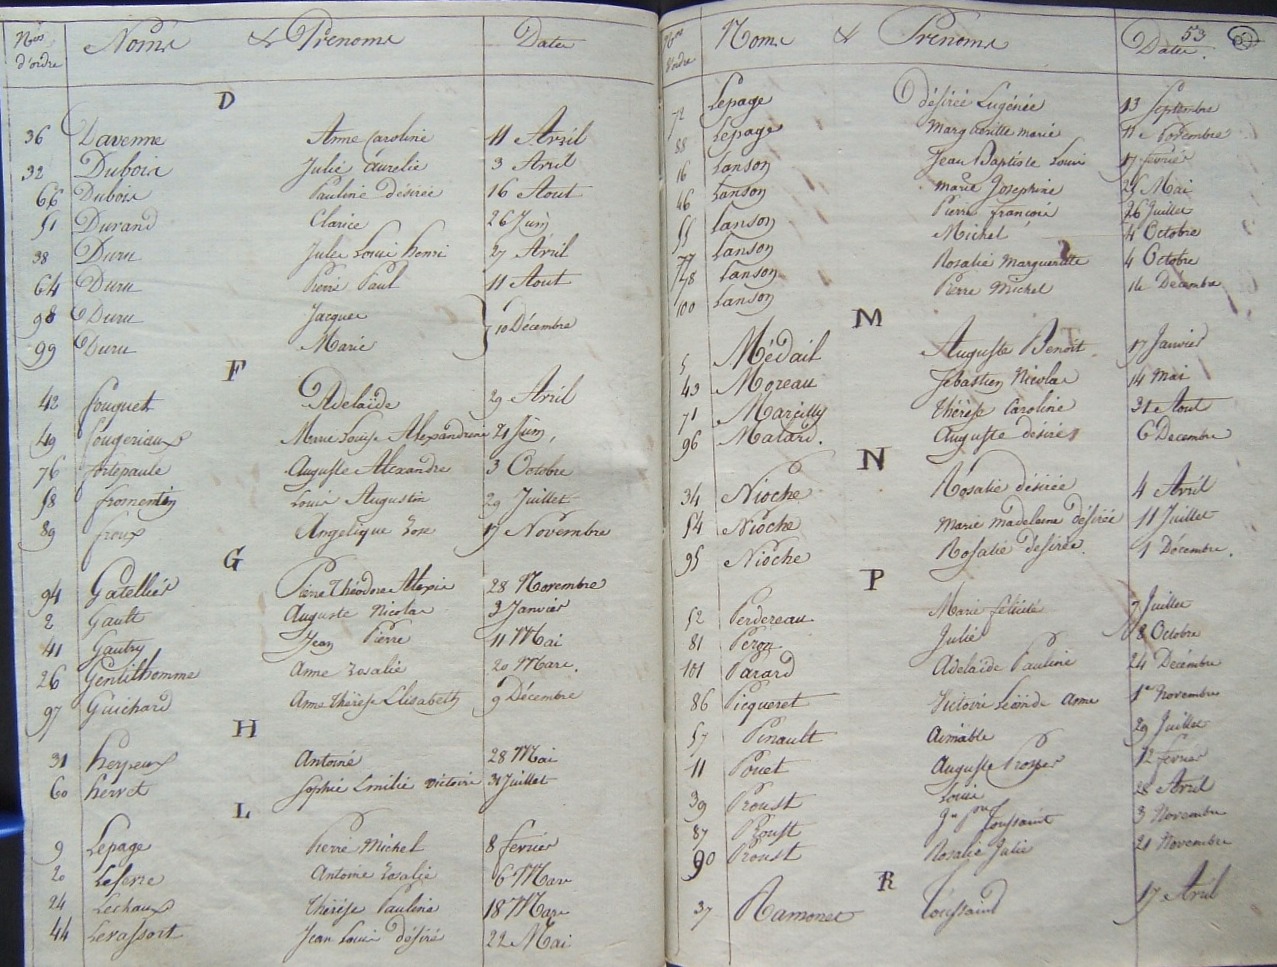 Nos d'ordre Noms & Prénoms Dates
D
36 Davenne Anne Caroline 11 Avril
32 Dubois Julie Aurelie 3 Avril
66 Dubois Pauline désirée 16 Aout
51 Durand Clarice 26 Juin
38 Duru Jules Louis henri 27 Avril
64 Duru Pierre Paul 11 Aout
98 Duru Jacques
} 10 Décembre
99 Duru Marie
F
42 fouquet Adelaïde 29 Avril
49 fougeriaux Marie Louise Alexandrine 21 Juin,
76 Auguste Alexandre 3 Octobre
58 fromentin Louis Augustin 29 Juillet
89 froux Angelique Rose 17 Novembre
G
94 Gatellier Pierre Théodore Alexis 28 Novembre
2 Gault Auguste Nicolas 3 Janvier
41 Gautry Jean Pierre 11 Mai
26 Gentilhomme Anne Rosalie 20 Mars.
97 Guichard Anne thérèse Elisabeth 9 Décembre
H
31 herpeux Antoine 28 Mai
60 herret Sophie Emilie victoire 31 Juillet
L
9 Lepage Pierre Michel 8 fevrier
20 Antoine Rosalie 6 Mars
24 Lechaux thérèse Pauline 18 Mars
44 Levassort Jean Louis désiré 22 Mai
Nos d'ordre Noms & Prénoms Dates 53
72 Lepage désirée Eugénie 13 Septembre
88 Lepage Margueritte marie 11 Novembre
16 Lanson Jean Baptiste Louis 17 fevrier
46 Lanson marie Josephine 29 Mai
55 Lanson Pierre françois 26 Juillet
77 Lanson Michel 4 Octobre
78 Lanson Rosalie Margueritte 4 Octobre
100 Lanson Pierre Michel 14 Decembre
M
5 Médail Auguste Benoit 17 Janvier
43 Moreau Sebastien Nicolas 14 mai
71 Marcilly thérèse Caroline 31 Aout
96 Malard. Auguste désiré 6 Decembre
N
34 Nioche Rosalie désirée 4 Avril
54 Nioche Marie Madeleine désirée 11 Juillet
95 Nioche Rosalie desirée. 1 Décembre.
P
52 Perdereau Marie félicité 7 Juillet
81 Julie 8 Octobre
101 Parard Adelaïde Pauline 24 Decembre
86 Picqueret Victoire Anne 1er Novembre
57 Pinault Aimable 29 Juillet
11 Pouet Auguste Prosper 12 fevrier
39 Proust Louise 28 Avril
87 Proust Toussaint 3 Novembre
90 Proust Rosalie Julie 21 Novembre
R
37 Ramonet toussaint 17 Avril